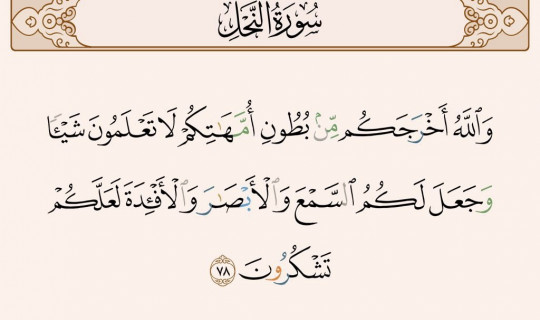 سُورَةُ النَّحْلِ
وَٱللَّهُ أَخْرَجَكُم مِّنۢ بُطُونِ أُمَّهَـٰتِكُمْ لَا تَعْلَمُونَ شَيْـًٔا
وَجَعَلَ لَكُمُ ٱلسَّمْعَ وَٱلْأَبْصَـٰرَ وَٱلْأَفْـِٔدَةَ لَعَلَّكُمْ
تَشْكُرُونَ ٧٨